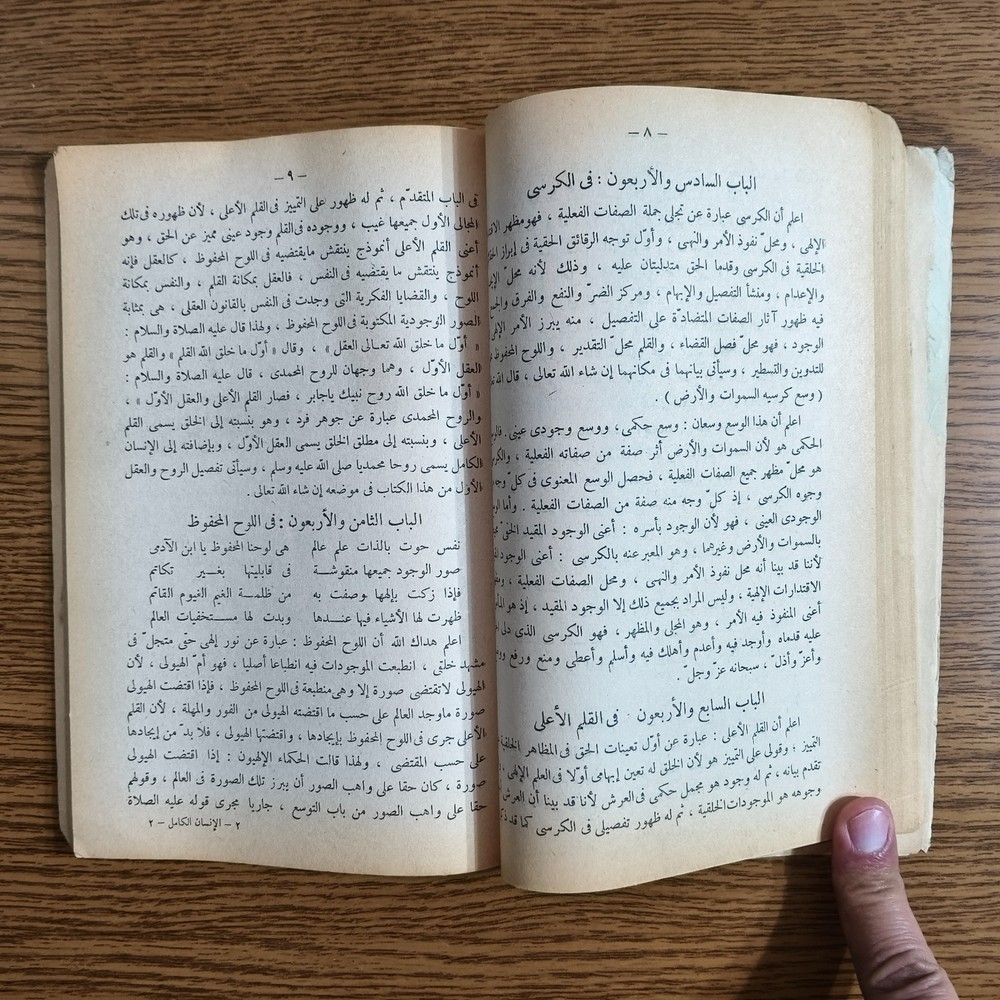 — ٨ —
الباب السادس والأربعون : فى الكرسى
اعلم أن الكرسى عبارة عن تجلى جملة الصفات الفعلية ، فهو مظهر
الإلهى ، ومحلّ نفوذ الأمر والنهى ، وأوّل توجه الرقائق الحقية فى إبراز
الخلقية فى الكرسى وقدما الحق متدليتان عليه ، وذلك لأنه محلّ
والإعدام ، ومنشأ التفصيل والإبهام ، ومركز الضرّ والنفع والفرق
فيه ظهور آثار الصفات المتضادّة على التفصيل ، منه يبرز الأمر الإلهى
الوجود ، فهو محلّ فصل القضاء ، والقلم محلّ التقدير ، واللوح المحفوظ
للتدوين والتسطير ، وسيأتى بيانهما فى مكانهما إن شاء الله تعالى ، قال الله
( وسع كرسيه السموات والأرض ) .
اعلم أن هذا الوسع وسعان : وسع حكمى، ووسع وجودى عينى .
الحكمى هو لأن السموات والأرض أثر صفة من صفاته الفعلية ،
هو محلّ مظهر جميع الصفات الفعلية ، فحصل الوسع المعنوى فى كلّ
وجوه الكرسى ، إذ كلّ وجه منه صفة من الصفات الفعلية . وأما
الوجودى العينى ، فهو لأن الوجود بأسره : أعنى الوجود المقيد الخلقى
بالسموات والأرض وغيرهما ، وهو المعبر عنه بالكرسى : أعنى الوجود
لأننا قد بينا أنه محل نفوذ الأمر والنهى ، ومحل الصفات الفعلية ،
الاقتدارات الإلهية ، وليس المراد بجميع ذلك إلا الوجود المقيد ، إذ هو
أعنى المنفوذ فيه الأمر ، وهو المجلى والمظهر ، فهو الكرسى الذى
عليه قدماه وأوجد فيه وأعدم وأهلك فيه وأسلم وأعطى ومنع ورفع
وأعزّ وأذلّ ، سبحانه عزّ وجلّ .
الباب السابع والأربعون : فى القلم الأعلى
اعلم أن القلم الأعلى : عبارة عن أوّل تعينات الحق فى المظاهر الخلقية
التمييز ؛ وقولى على التمييز هو لأن الخلق له تعين إبهامى أوّلا فى العلم الإلهى
تقدم بيانه ، ثم له وجود هو مجمل حكمى فى العرش لأنا قد بينا أن العرش
وجوهه هو الموجودات الخلقية ، ثم له ظهور تفصيلى فى الكرسى كما قد
— ٩ —
فى الباب المتقدّم ، ثم له ظهور على التمييز فى القلم الأعلى ، لأن ظهوره فى تلك
المجالى الأول جميعها غيب ، ووجوده فى القلم وجود عينى مميز عن الحق ، وهو
أعنى القلم الأعلى أنموذج ينتقش مايقتضيه فى اللوح المحفوظ . كالعقل فإنه
أنموذج ينتقش ما يقتضيه فى النفس ، فالعقل بمكانة القلم ، والنفس بمكانة
اللوح ، والقضايا الفكرية التى وجدت فى النفس بالقانون العقلى ، هى بمثابة
الصور الوجودية المكتوبة فى اللوح المحفوظ ، ولهذا قال عليه الصلاة والسلام :
« أوّل ما خلق الله تعالى العقل » ، وقال « أوّل ما خلق الله القلم » والقلم هو
العقل الأوّل ، وهما وجهان للروح المحمدى ، قال عليه الصلاة والسلام :
« أوّل ما خلق الله روح نبيك ياجابر ، فصار القلم الأعلى والعقل الأوّل » ،
والروح المحمدى عبارة عن جوهر فرد ، وهو بنسبته إلى الخلق يسمى القلم
الأعلى ، وبنسبته إلى مطلق الخلق يسمى العقل الأوّل ، وبإضافته إلى الإنسان
الكامل يسمى روحا محمديا صلى الله عليه وسلم ، وسيأتى تفصيل الروح والعقل
الأوّل من هذا الكتاب فى موضعه إن شاء الله تعالى .
الباب الثامن والأربعون : فى اللوح المحفوظ
نفس حوت بالذات علم عالم هى لوحنا المحفوظ يا ابن الآدمى
صور الوجود جميعها منقوشــة فى قابليتها بغــير تكاتم
فإذا زكت بإلهها وصفت به من ظلمــة الغيم الغيوم القاتم
ظهرت لها الأشياء فيها عنــدها وبدت لها مســتخفيات العالم
اعلم هداك الله أن اللوح المحفوظ : عبارة عن نور إلهى حقى متجلّ فى
مشهد خلقى ، انطبعت الموجودات فيه انطباعا أصليا ، فهو أمّ الهيولى ، لأن
الهيولى لاتقتضى صورة إلا وهى منطبعة فى اللوح المحفوظ ، فإذا اقتضت الهيولى
صورة ماوجد العالم على حسب ما اقتضته الهيولى من الفور والمهلة ، لأن القلم
الأعلى جرى فى اللوح المحفوظ بإيجادها ، واقتضتها الهيولى ، فلا بدّ من إيجادها
على حسب المقتضى ، ولهذا قالت الحكماء الإلهيون : إذا اقتضت الهيولى
صورة ، كان حقا على واهب الصور أن يبرز تلك الصورة فى العالم ، وقولهم
حقا على واهب الصور من باب التوسع ، جاريا مجرى قوله عليه الصلاة
٢ — الإنسان الكامل — ٢